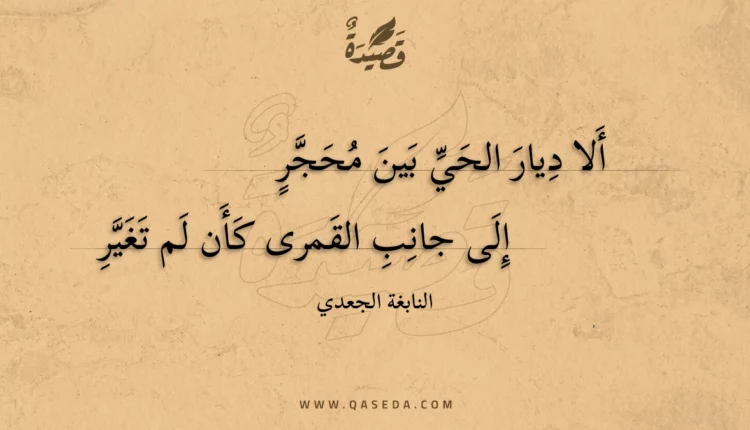 قَصِيدَةٌ
أَلا دِيارَ الحَيِّ بَينَ مُحَجَّرٍ
إِلَى جانِبِ القَمرى كَأَن لَم تَغَيَّرِ
النابغة الجعدي
WWW.QASEDA.COM